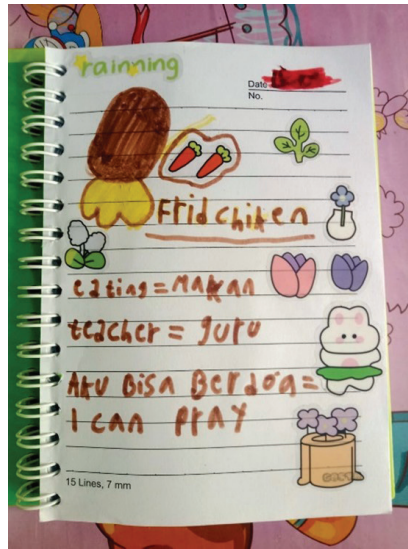 rainning
Date
No.
Fridchiken
eating = makan
teacher = guru
Aku Bisa Berdoa =
I can pray
15 Lines, 7 mm